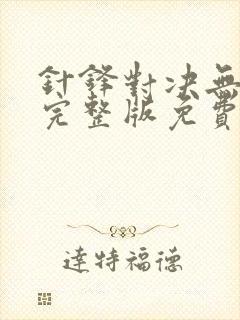 針鋒對决無
完整版免費
達特福德